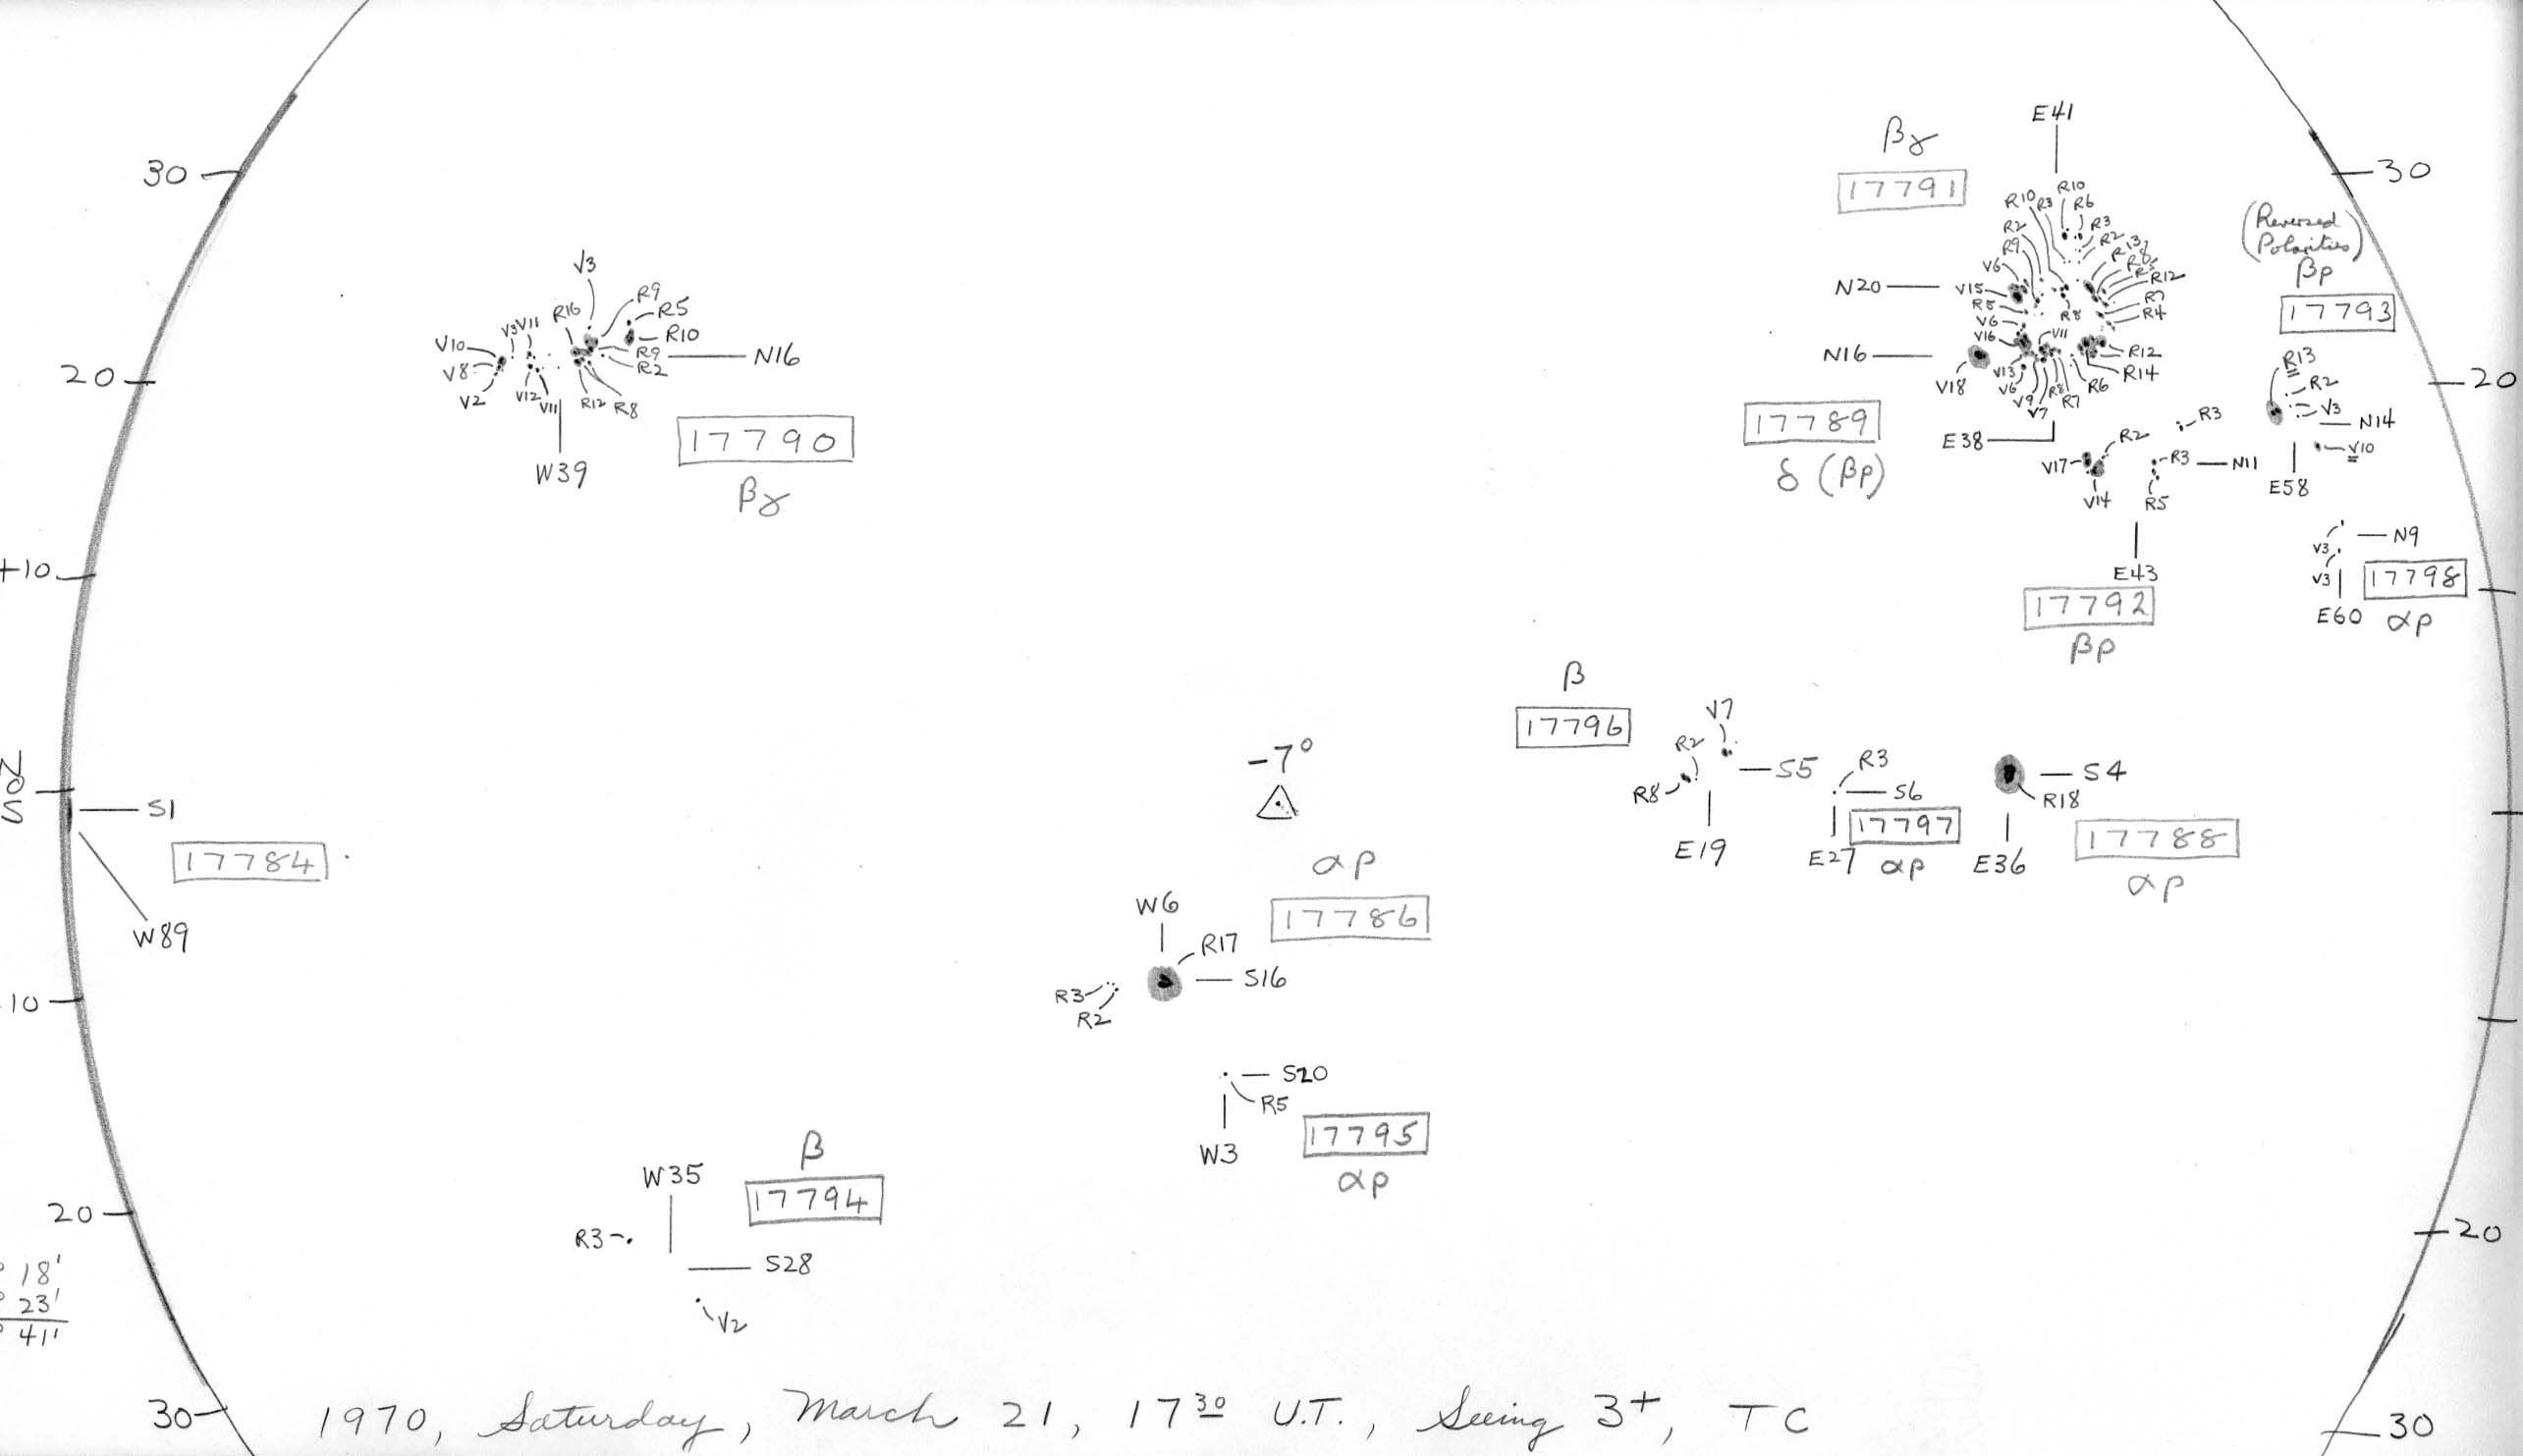 30
20
+10
N
0
S
10
20
30
18'
23'
41'
V3
R16
R9
R5
R10
V10
V3
V11
V8
V2
V12
V11
R12
R8
R9
R2
N16
W39
17790
βγ
S1
17784
W89
E41
βγ
17791
R10
R3
R10
R6
R3
R2
R13
R2
R9
V6
R12
N20
V15
R5
V6
V16
R8
R7
R4
V11
N16
V18
V13
V6
V9
V7
R8
R7
R6
R12
R14
17789
δ (βp)
E38
V17
R2
V14
R3
R3
N11
R5
E43
17792
βp
30
(Reversed
Polarities)
βp
17793
20
R13
R2
V3
N14
V10
E58
N9
V3
V3
17798
E60
αp
β
17796
V7
R2
R8
S5
E19
R3
S6
17797
E27
αp
S4
R18
E36
17788
αp
-7°
αp
17786
W6
R17
S16
R3
R2
S20
R5
W3
17795
αp
β
17794
W35
R3
S28
V2
20
30
1970, Saturday, March 21, 17 30 U.T., Seeing 3+, TC